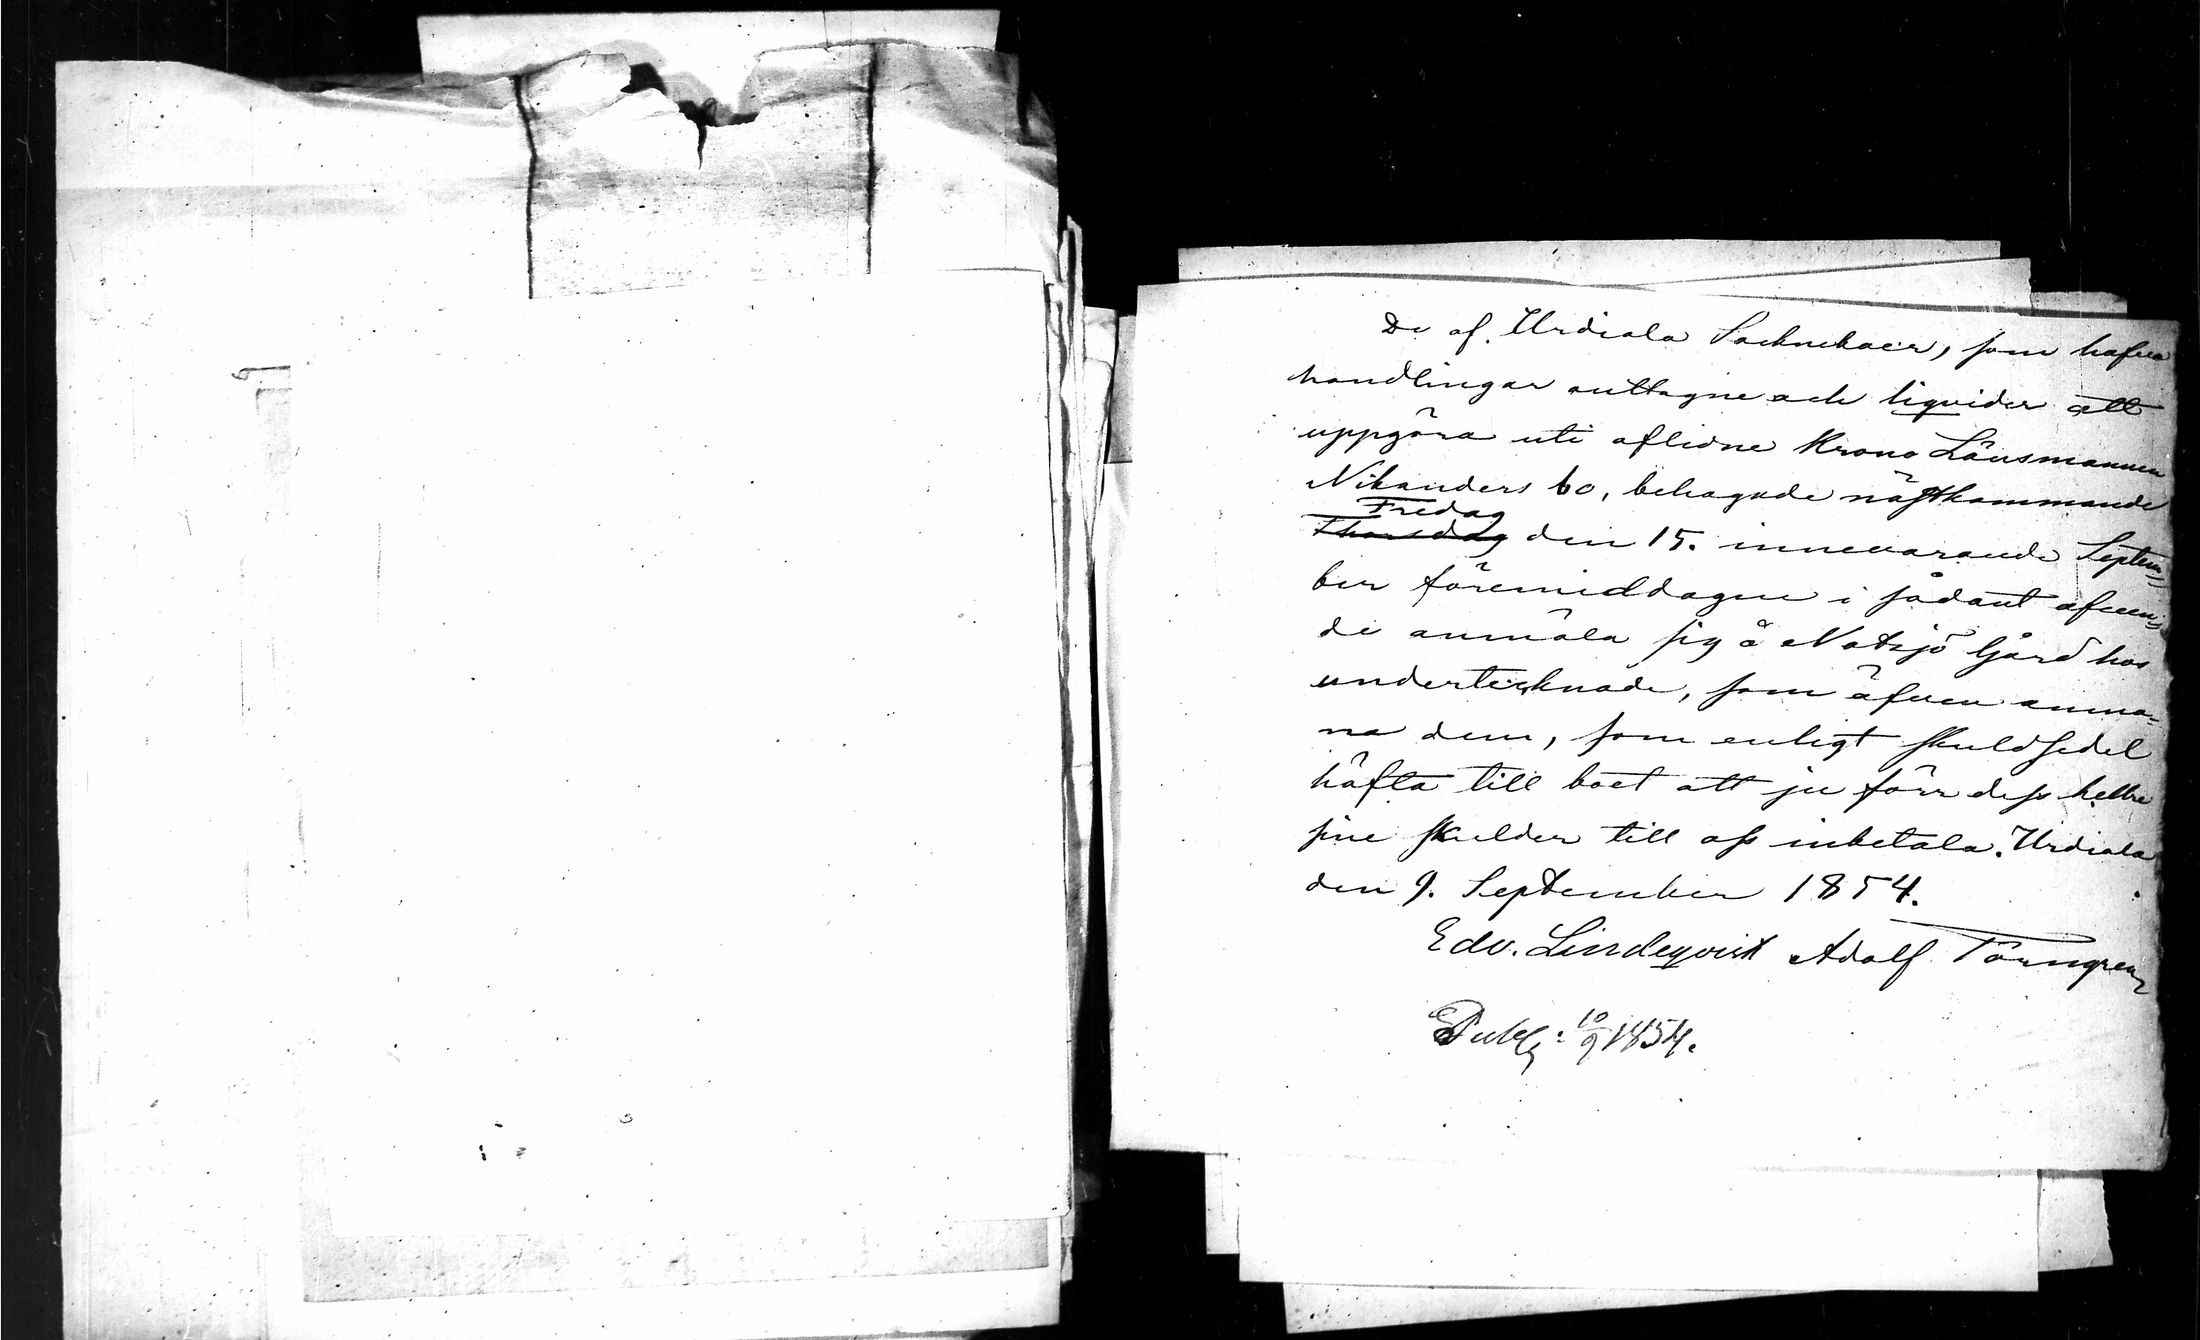 De af Urdiala Sockneboer, som hafva
handlingar outtagne och liqvider att
uppgöra uti aflidne Krono Länsmannen
Nikanders bo, behagade nästkommande
Fredag
Thorsdag den 15. innevarande Septem-
ber föremiddagen i sådant afseen-
de anmäla sig å Notsjö Gård hos
undertecknade, som äfven anma-
na dem, som enligt skuldsedel
häfta till boet att ju förr dess hellre
sine skulder till oss inbetala. Urdiala
den 9. September 1854.
Edv. Lindeqvist Adolf Törngren
Publ: 10/9 1854.